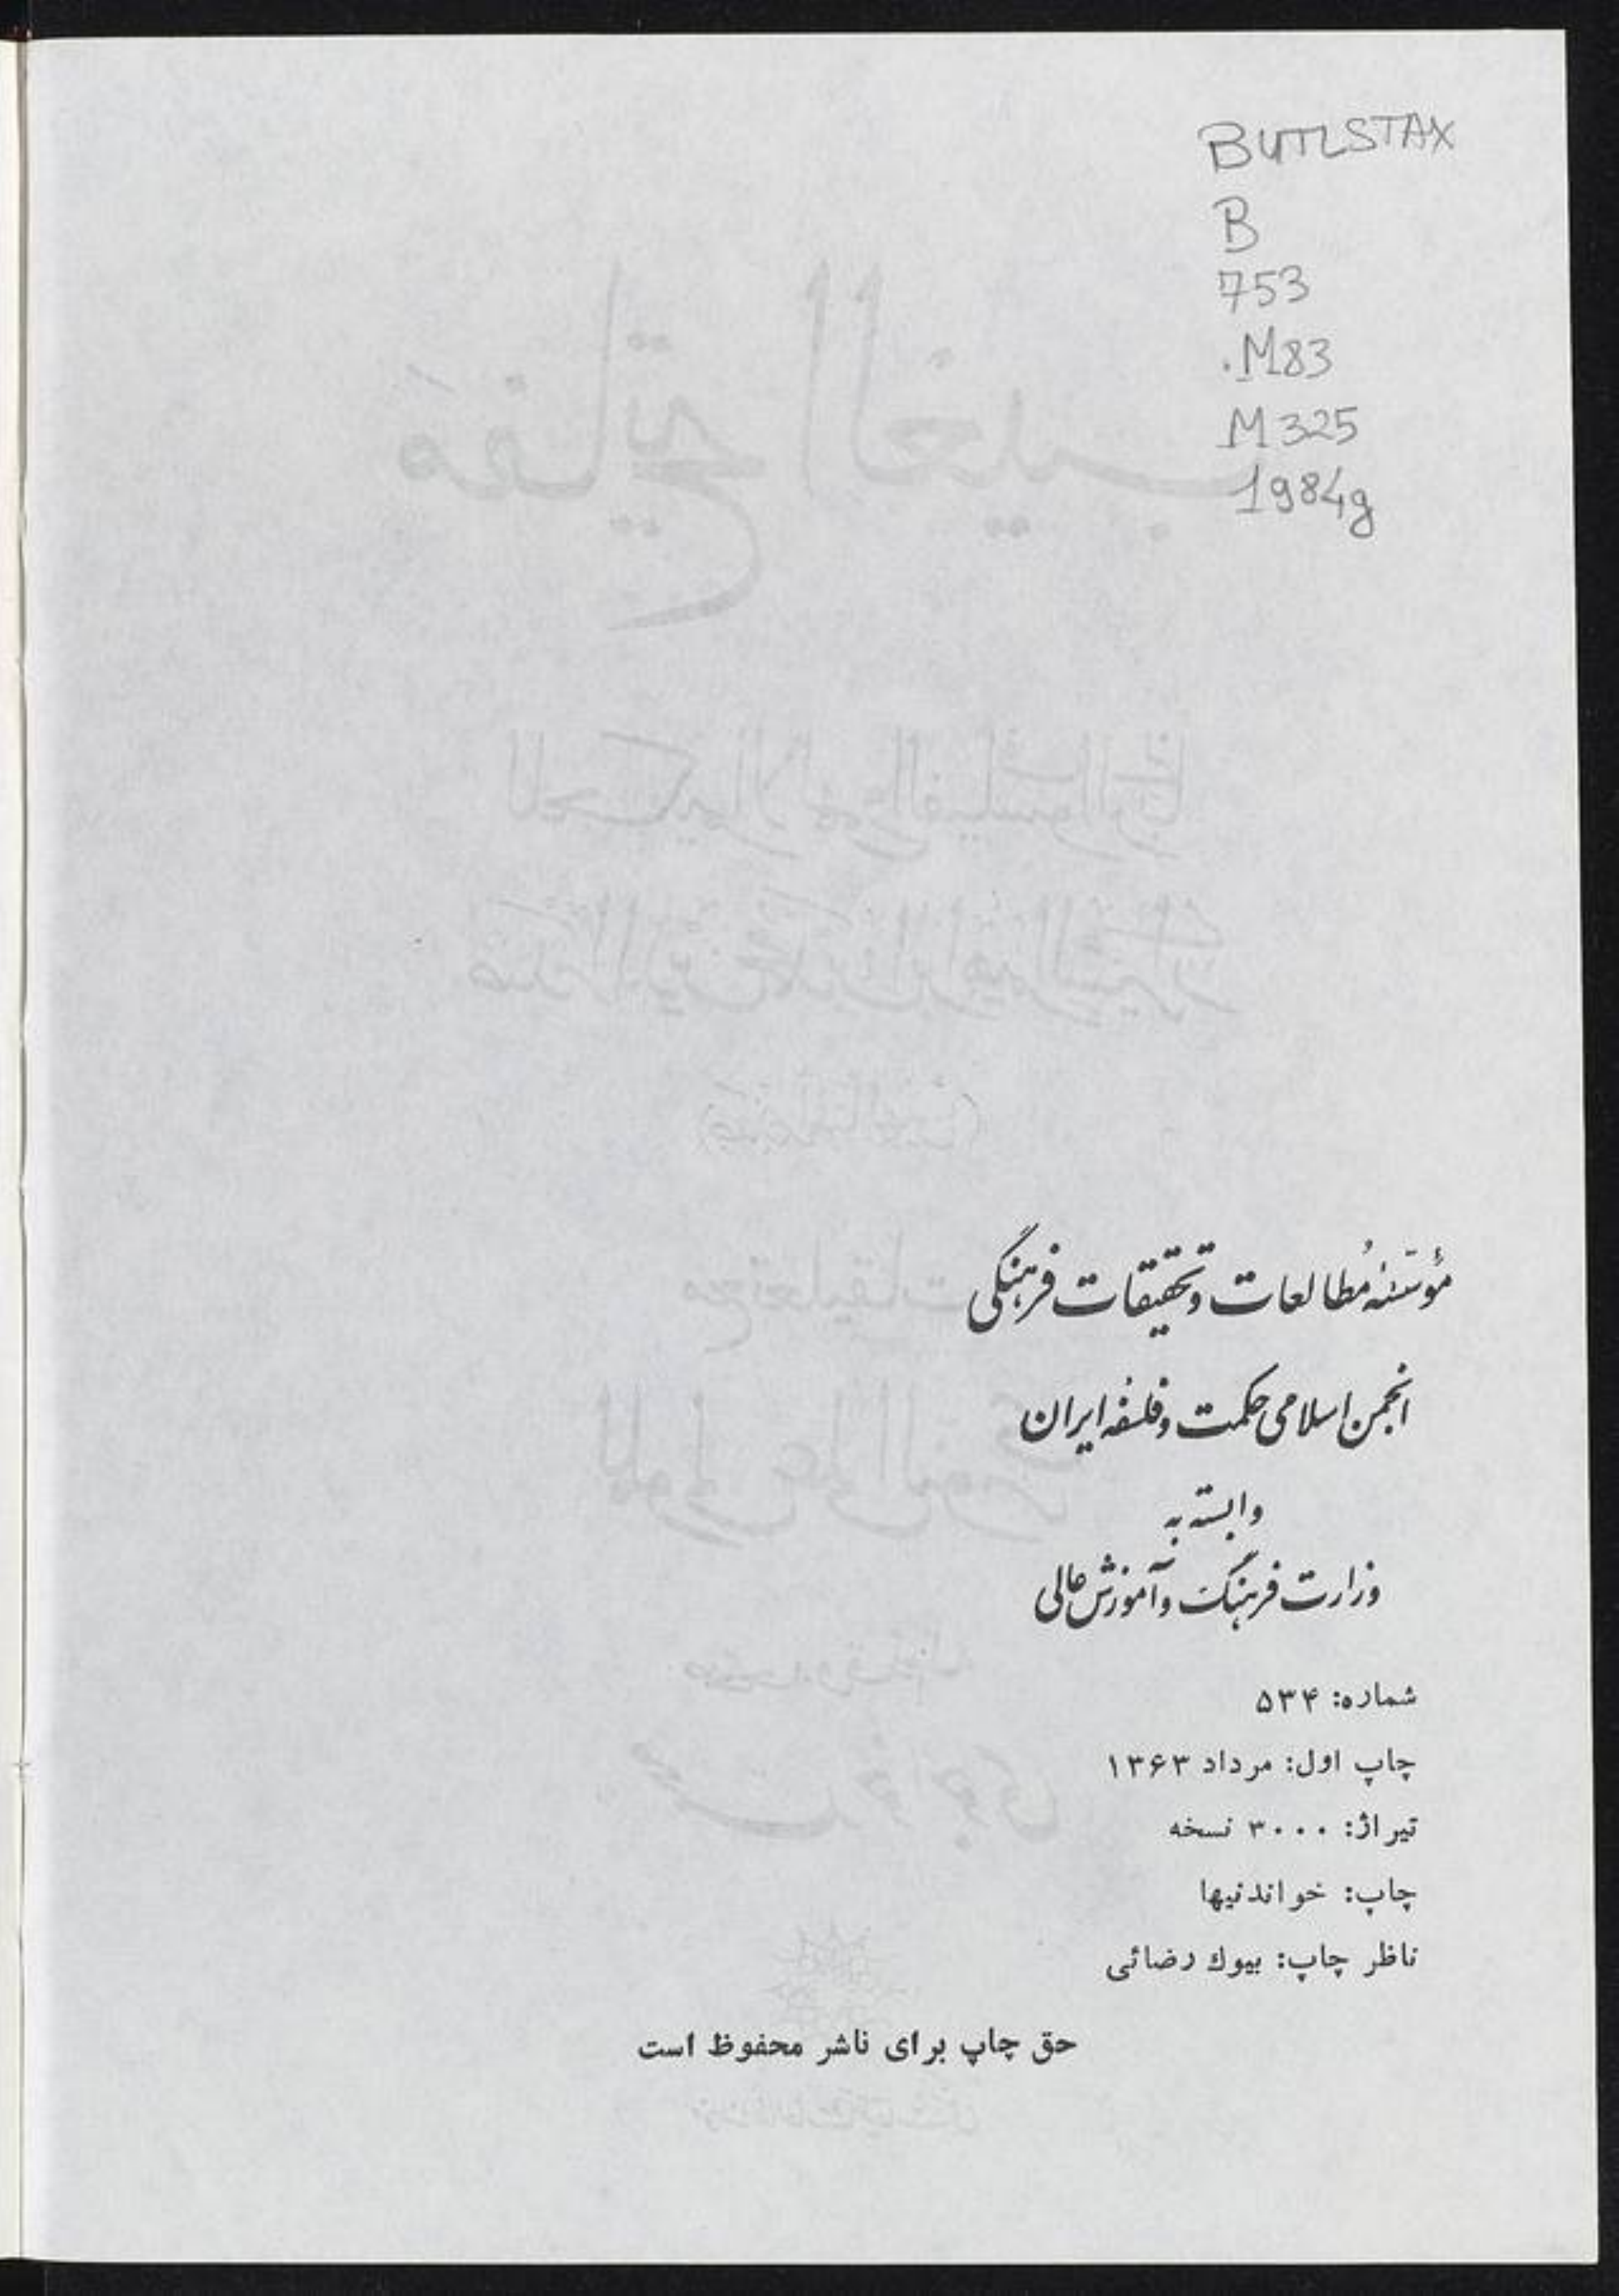 BUTLSTAX
B
753
.M83
M325
1984g
مؤسّسهٔ مُطالعات و تحقیقات فرهنگی
انجمن اسلامی حکمت و فلسفهٔ ایران
وابسته به
وزارت فرهنگ و آموزش عالی
شماره: ۵۳۴
چاپ اول: مرداد ۱۳۶۳
تیراژ: ۳۰۰۰ نسخه
چاپ: خواندنیها
ناظر چاپ: بیوك رضائی
حق چاپ برای ناشر محفوظ است